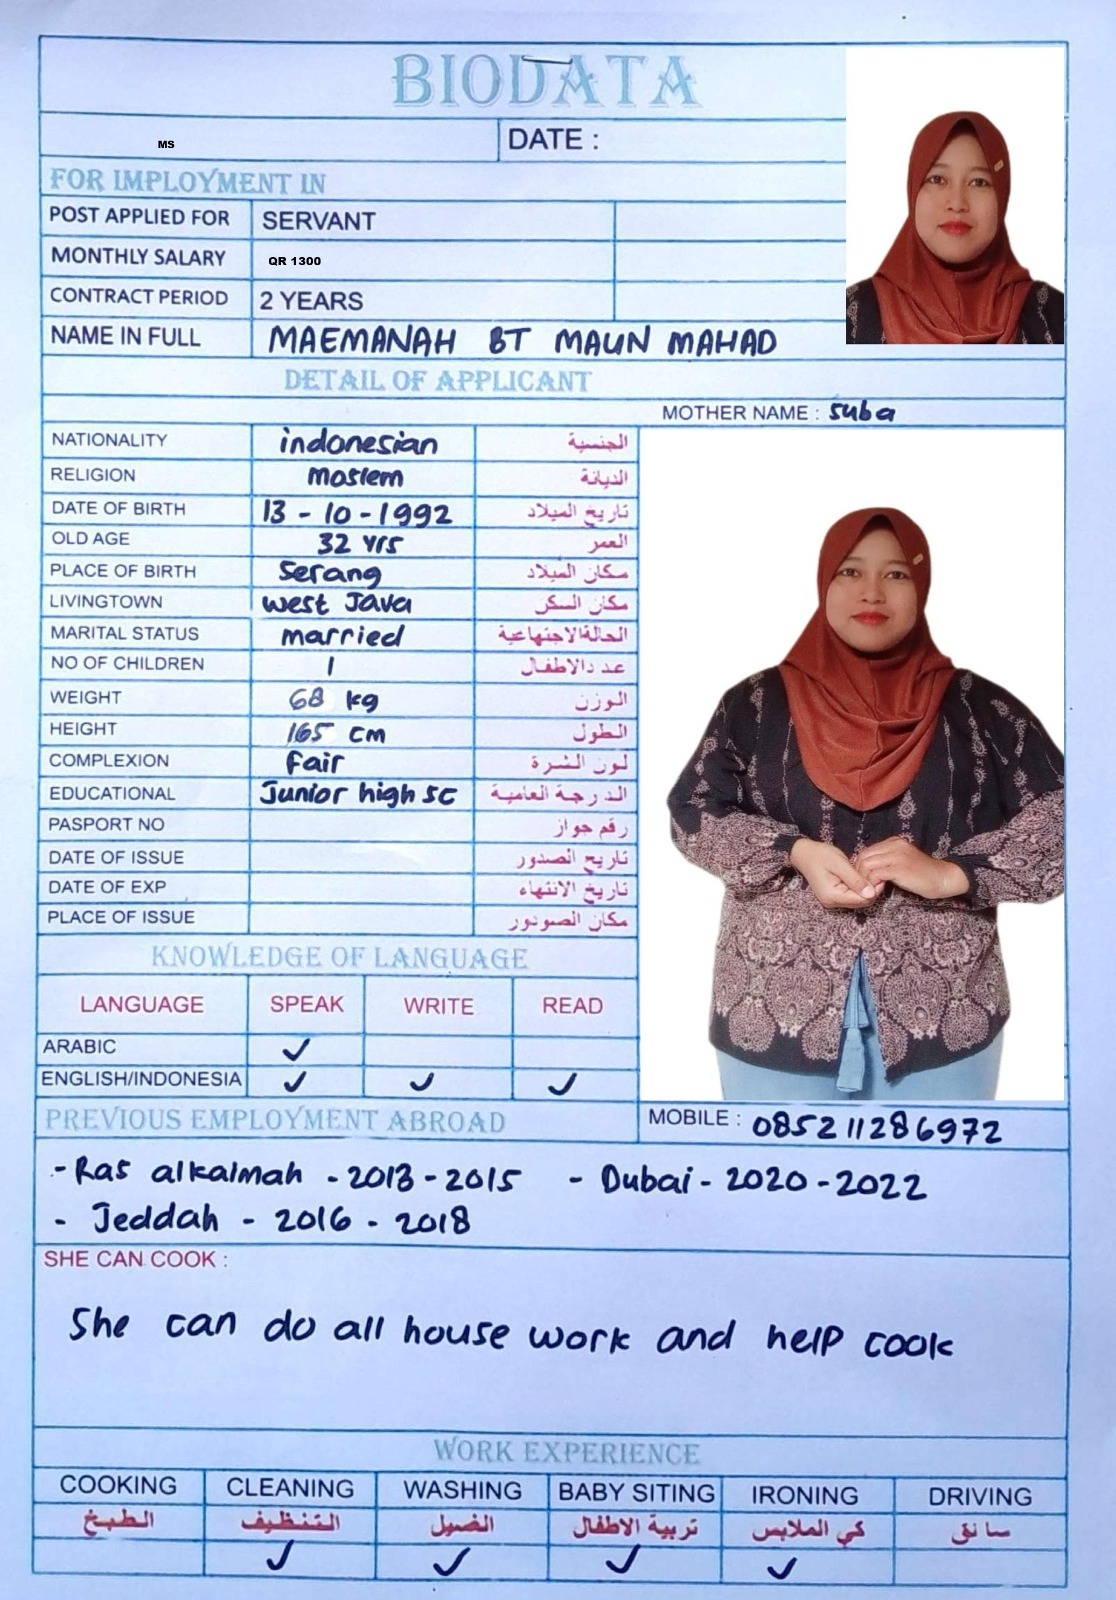 BIODATA
MS
DATE :
FOR IMPLOYMENT IN
POST APPLIED FOR SERVANT
MONTHLY SALARY QR 1300
CONTRACT PERIOD 2 YEARS
NAME IN FULL MAEMANAH BT MAUN MAHAD
DETAIL OF APPLICANT
MOTHER NAME : suba
NATIONALITY indonesian الجنسية
RELIGION moslem الديانة
DATE OF BIRTH 13 - 10 - 1992 تاريخ الميلاد
OLD AGE 32 yrs العمر
PLACE OF BIRTH Serang مكان الميلاد
LIVINGTOWN west Java مكان السكن
MARITAL STATUS married الحالةالاجتهاعية
NO OF CHILDREN 1 عددالاطفال
WEIGHT 68 kg الوزن
HEIGHT 165 cm الطول
COMPLEXION fair لون الشرة
EDUCATIONAL Junior high sc الدرجة العامية
PASPORT NO رقم جواز
DATE OF ISSUE تاريخ الصدور
DATE OF EXP تاريخ الانتهاء
PLACE OF ISSUE مكان الصودور
KNOWLEDGE OF LANGUAGE
LANGUAGE SPEAK WRITE READ
ARABIC ✓
ENGLISH/INDONESIA ✓ ✓ ✓
PREVIOUS EMPLOYMENT ABROAD
MOBILE : 085211286972
- Ras alkaimah - 2013 - 2015 - Dubai - 2020 - 2022
- Jeddah - 2016 - 2018
SHE CAN COOK :
She can do all house work and help cook
WORK EXPERIENCE
COOKING CLEANING WASHING BABY SITING IRONING DRIVING
الطبخ التنظيف الغسيل تربية الاطفال كي الملابس سانق
✓ ✓ ✓ ✓